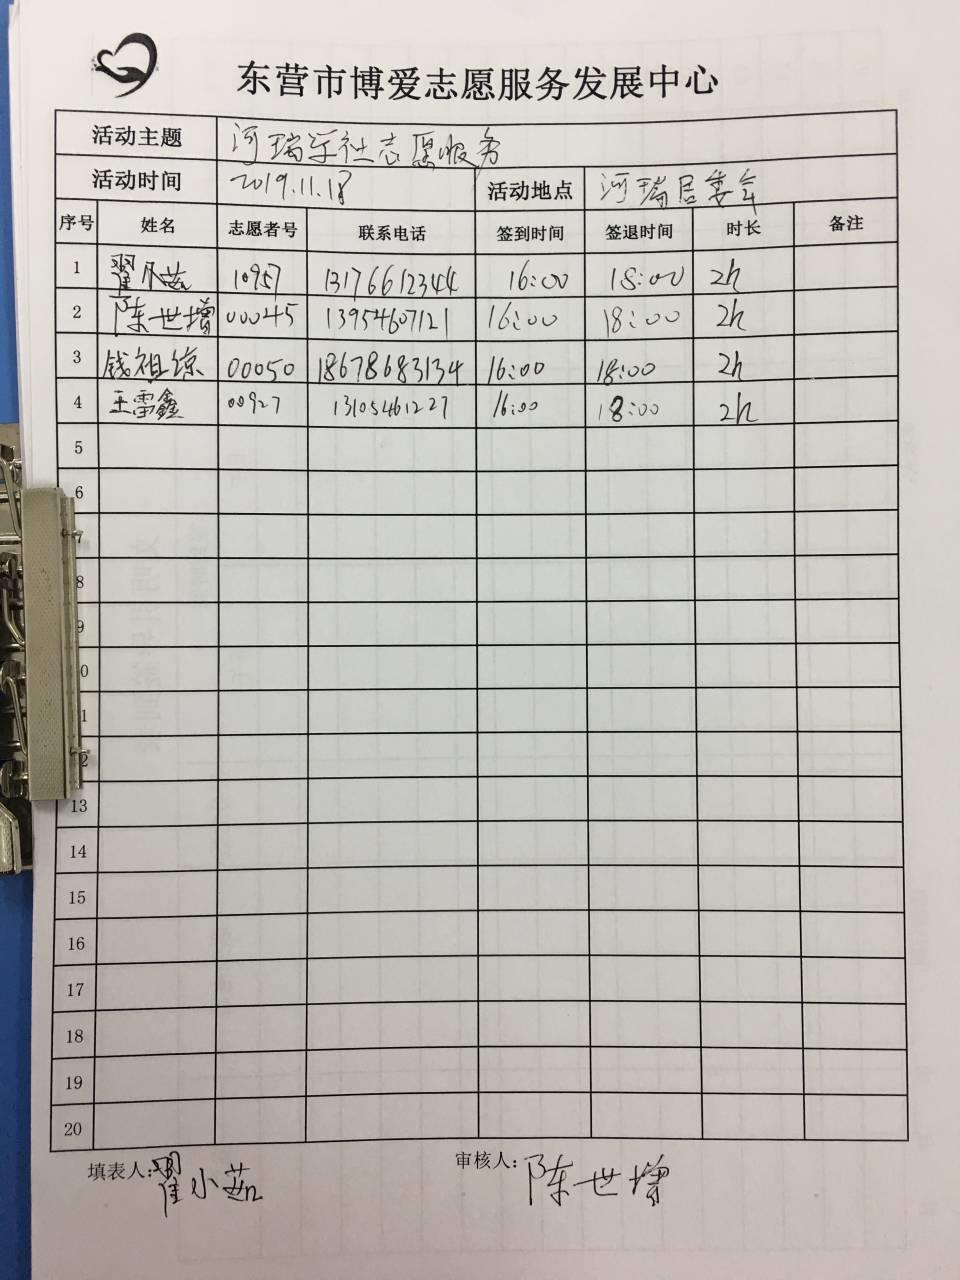 东营市博爱志愿服务发展中心
活动主题 河瑞学社志愿服务
活动时间 2019.11.18 活动地点 河瑞居委会
序号 姓名 志愿者号 联系电话 签到时间 签退时间 时长 备注
1 翟小茹 10957 13176612344 16:00 18:00 2h
2 陈世增 00045 13954607121 16:00 18:00 2h
3 钱祖琼 00050 18678683134 16:00 18:00 2h
4 王雷鑫 00927 13105461227 16:00 18:00 2h
5
6
7
8
9
0
1
2
13
14
15
16
17
18
19
20
填表人:翟小茹 审核人:陈世增